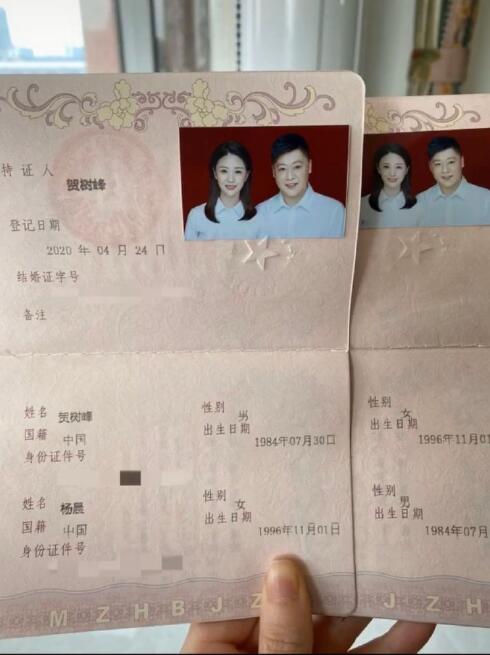 持证人 贺树峰
登记日期
2020 年 04 月 24 日
结婚证字号
备注
姓名 贺树峰 性别 男
国籍 中国 出生日期 1984年07月30日
身份证件号
姓名 杨晨 性别 女
国籍 中国 出生日期 1996年11月01日
身份证件号
MZHBJZ
性别 女
出生日期
1996年11月01
性别 男
出生日期
1984年07月
JZH